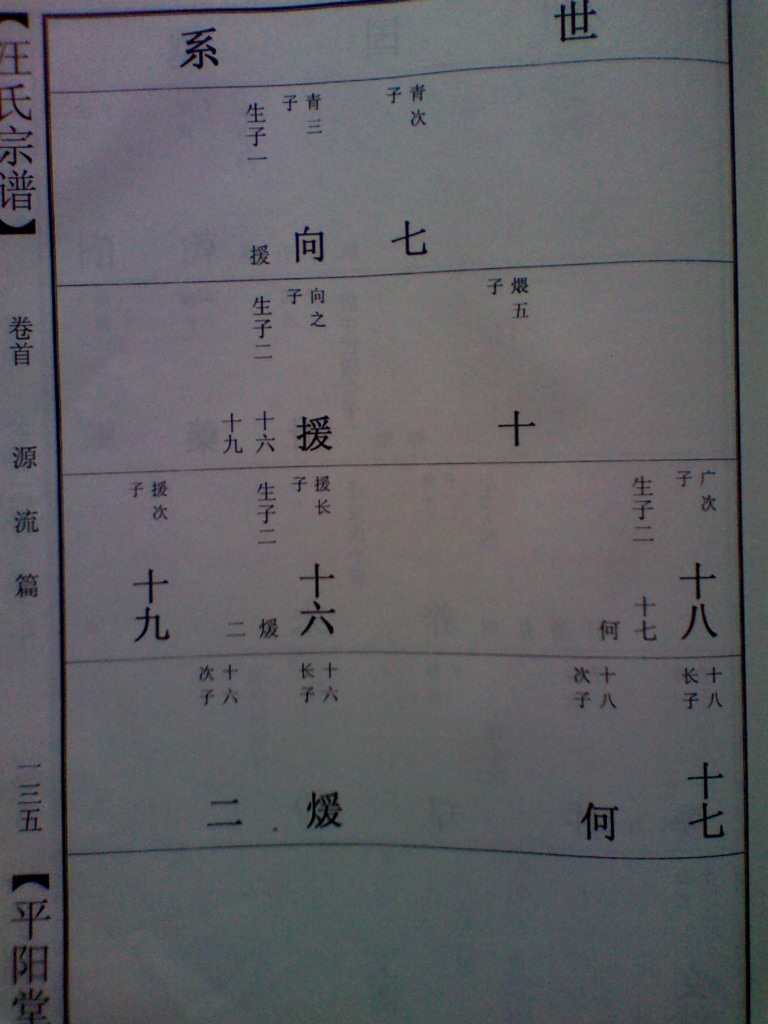 世系
青次子
七
青三子
向
生子一
援
煨五子
十
向之子
援
生子二
十六
十九
广次子
十八
生子二
十七
何
援长子
十六
生子二
煖
二
援次子
十九
十八长子
十七
十八次子
何
十六长子
煖
十六次子
二
【汪氏宗谱】
卷首
源流篇
一三五
【平阳堂